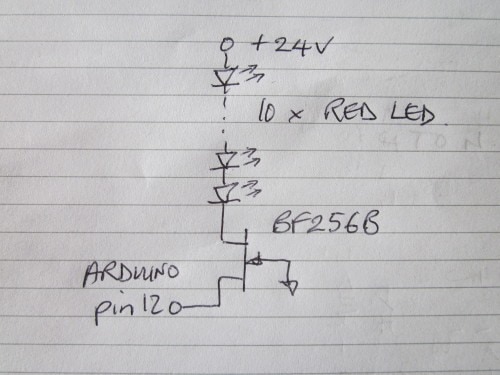 +24V
10 x RED LED
BF256B
ARDUINO
pin 12